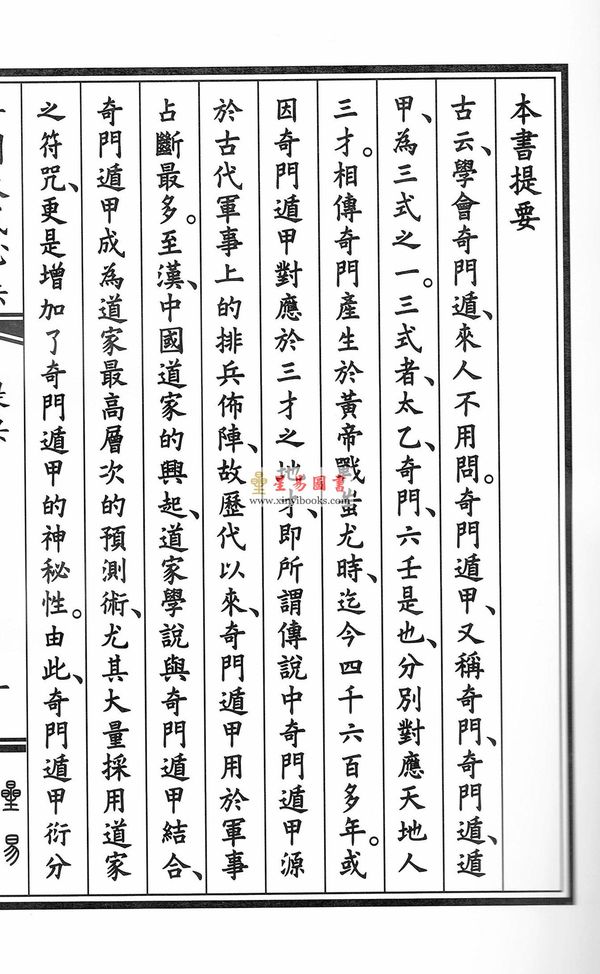 本書提要
古云、學會奇門遁、來人不用問。奇門遁甲、又稱奇門、奇門遁、遁
甲、為三式之一。三式者、太乙、奇門、六壬是也、分別對應天地人
三才。相傳奇門產生於黃帝戰蚩尤時、迄今四千六百多年。或
因奇門遁甲對應於三才之地才、即所謂傳說中奇門遁甲源
於古代軍事上的排兵佈陣、故歷代以來、奇門遁甲用於軍事
占斷最多。至漢、中國道家的興起、道家學說與奇門遁甲結合、
奇門遁甲成為道家最高層次的預測術、尤其大量採用道家
之符咒、更是增加了奇門遁甲的神秘性。由此、奇門遁甲衍分
星易
星易圖書
www.xinyibooks.com